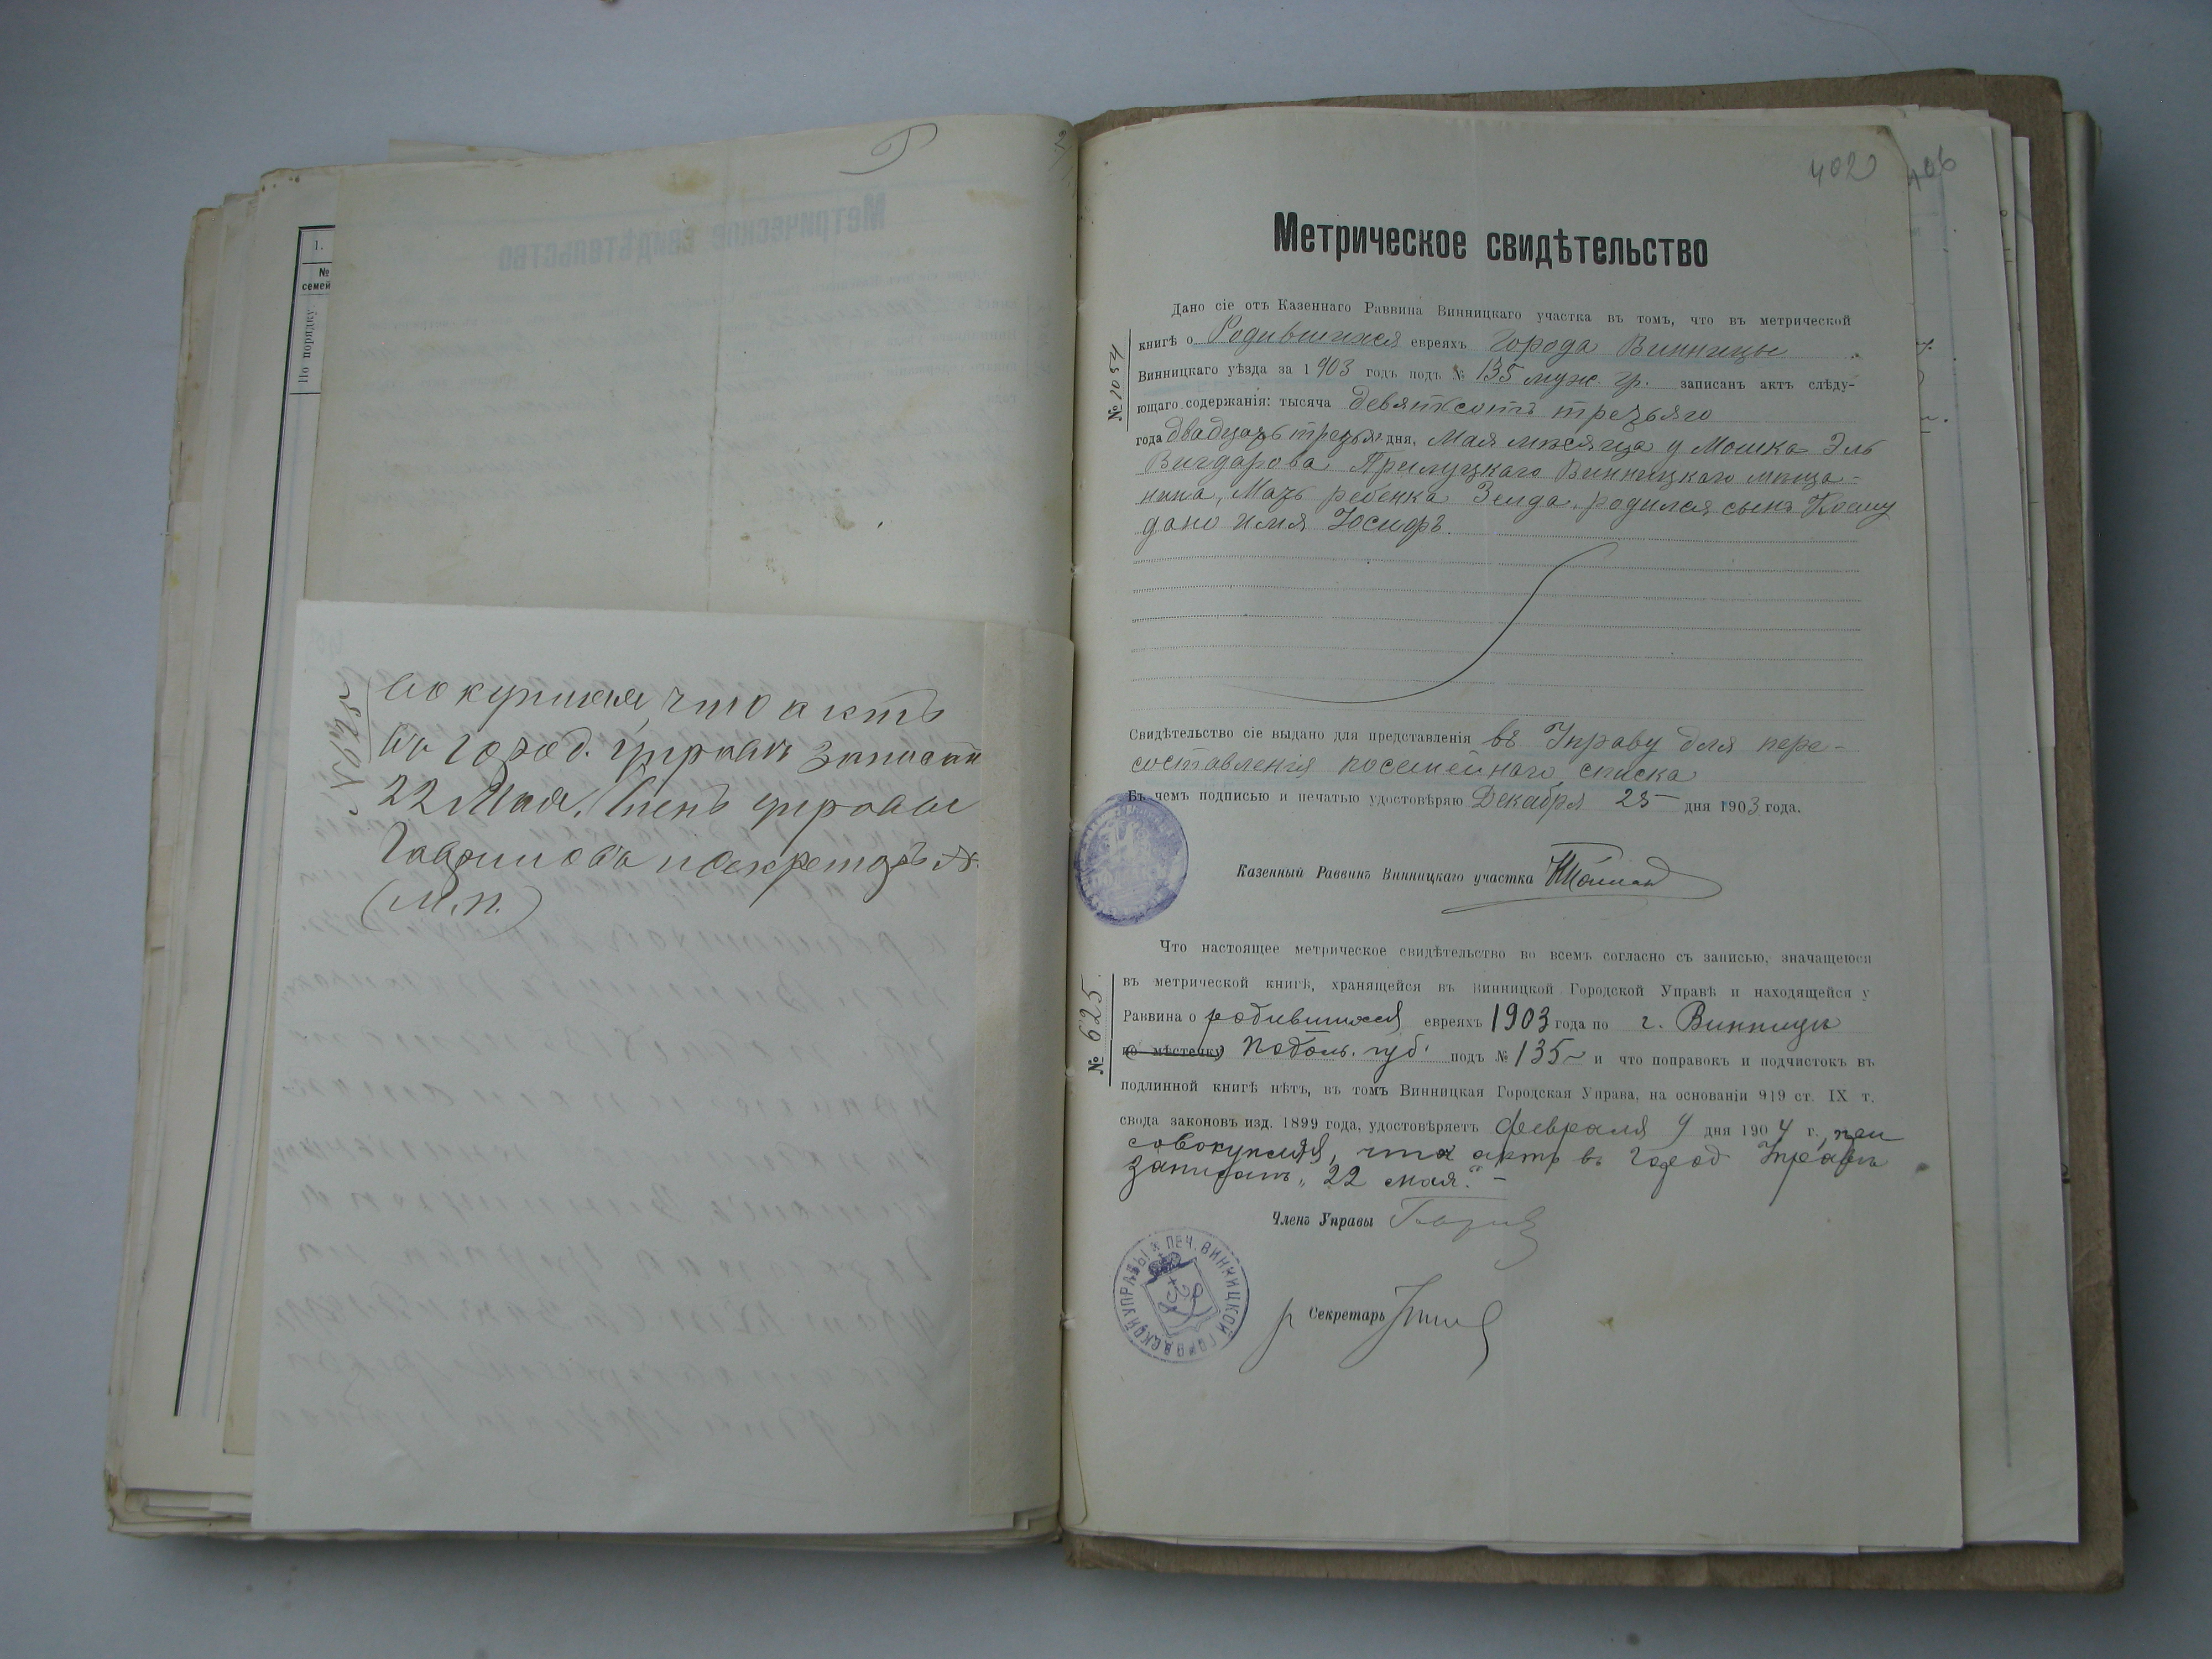 1.
№
семей
По порядку
вокупляя, что актъ
въ город. управѣ записанъ
22 Мая. Членъ управы
и секретарь
(М.п.)
402
406
Метрическое свидѣтельство
№ 1054
Дано сіе отъ Казеннаго Раввина Винницкаго участка въ томъ, что въ метрической
книгѣ о Родившихся евреяхъ города Винницы
Винницкаго уѣзда за 1903 годъ подъ № 135 муж. гр. записанъ актъ слѣду-
ющаго содержанія: тысяча девятьсотъ третьяго
года двадцать третьяго дня, Мая мѣсяца у Мошка Эль
Вигдарова Прилуцкаго Винницкаго мѣща-
нина, Мать ребенка Зелда, родился сынъ Коему
дано имя Іосифъ.
Свидѣтельство сіе выдано для представленія въ Управу для пере-
составленія посемейнаго списка
Въ чемъ подписью и печатью удостовѣряю Декабря 25 дня 1903 года.
Казенный Раввинъ Винницкаго участка
№ 625.
Что настоящее метрическое свидѣтельство во всемъ согласно съ записью, значащеюся
въ метрической книгѣ, хранящейся въ Винницкой Городской Управѣ и находящейся у
Раввина о родившихся евреяхъ 1903 года по г. Винницѣ
по мѣстечку Подоль. губ. подъ № 135 и что поправокъ и подчистокъ въ
подлинной книгѣ нѣтъ, въ томъ Винницкая Городская Управа, на основаніи 919 ст. IX т.
свода законовъ изд. 1899 года, удостовѣряетъ Февраля 9 дня 1904 г., при
совокупляя, что актъ въ Город Управѣ
записанъ „22 мая." –
Членъ Управы
ПЕЧ. ВИННИЦКОЙ ГОРОДСКОЙ УПРАВЫ
Секретарь